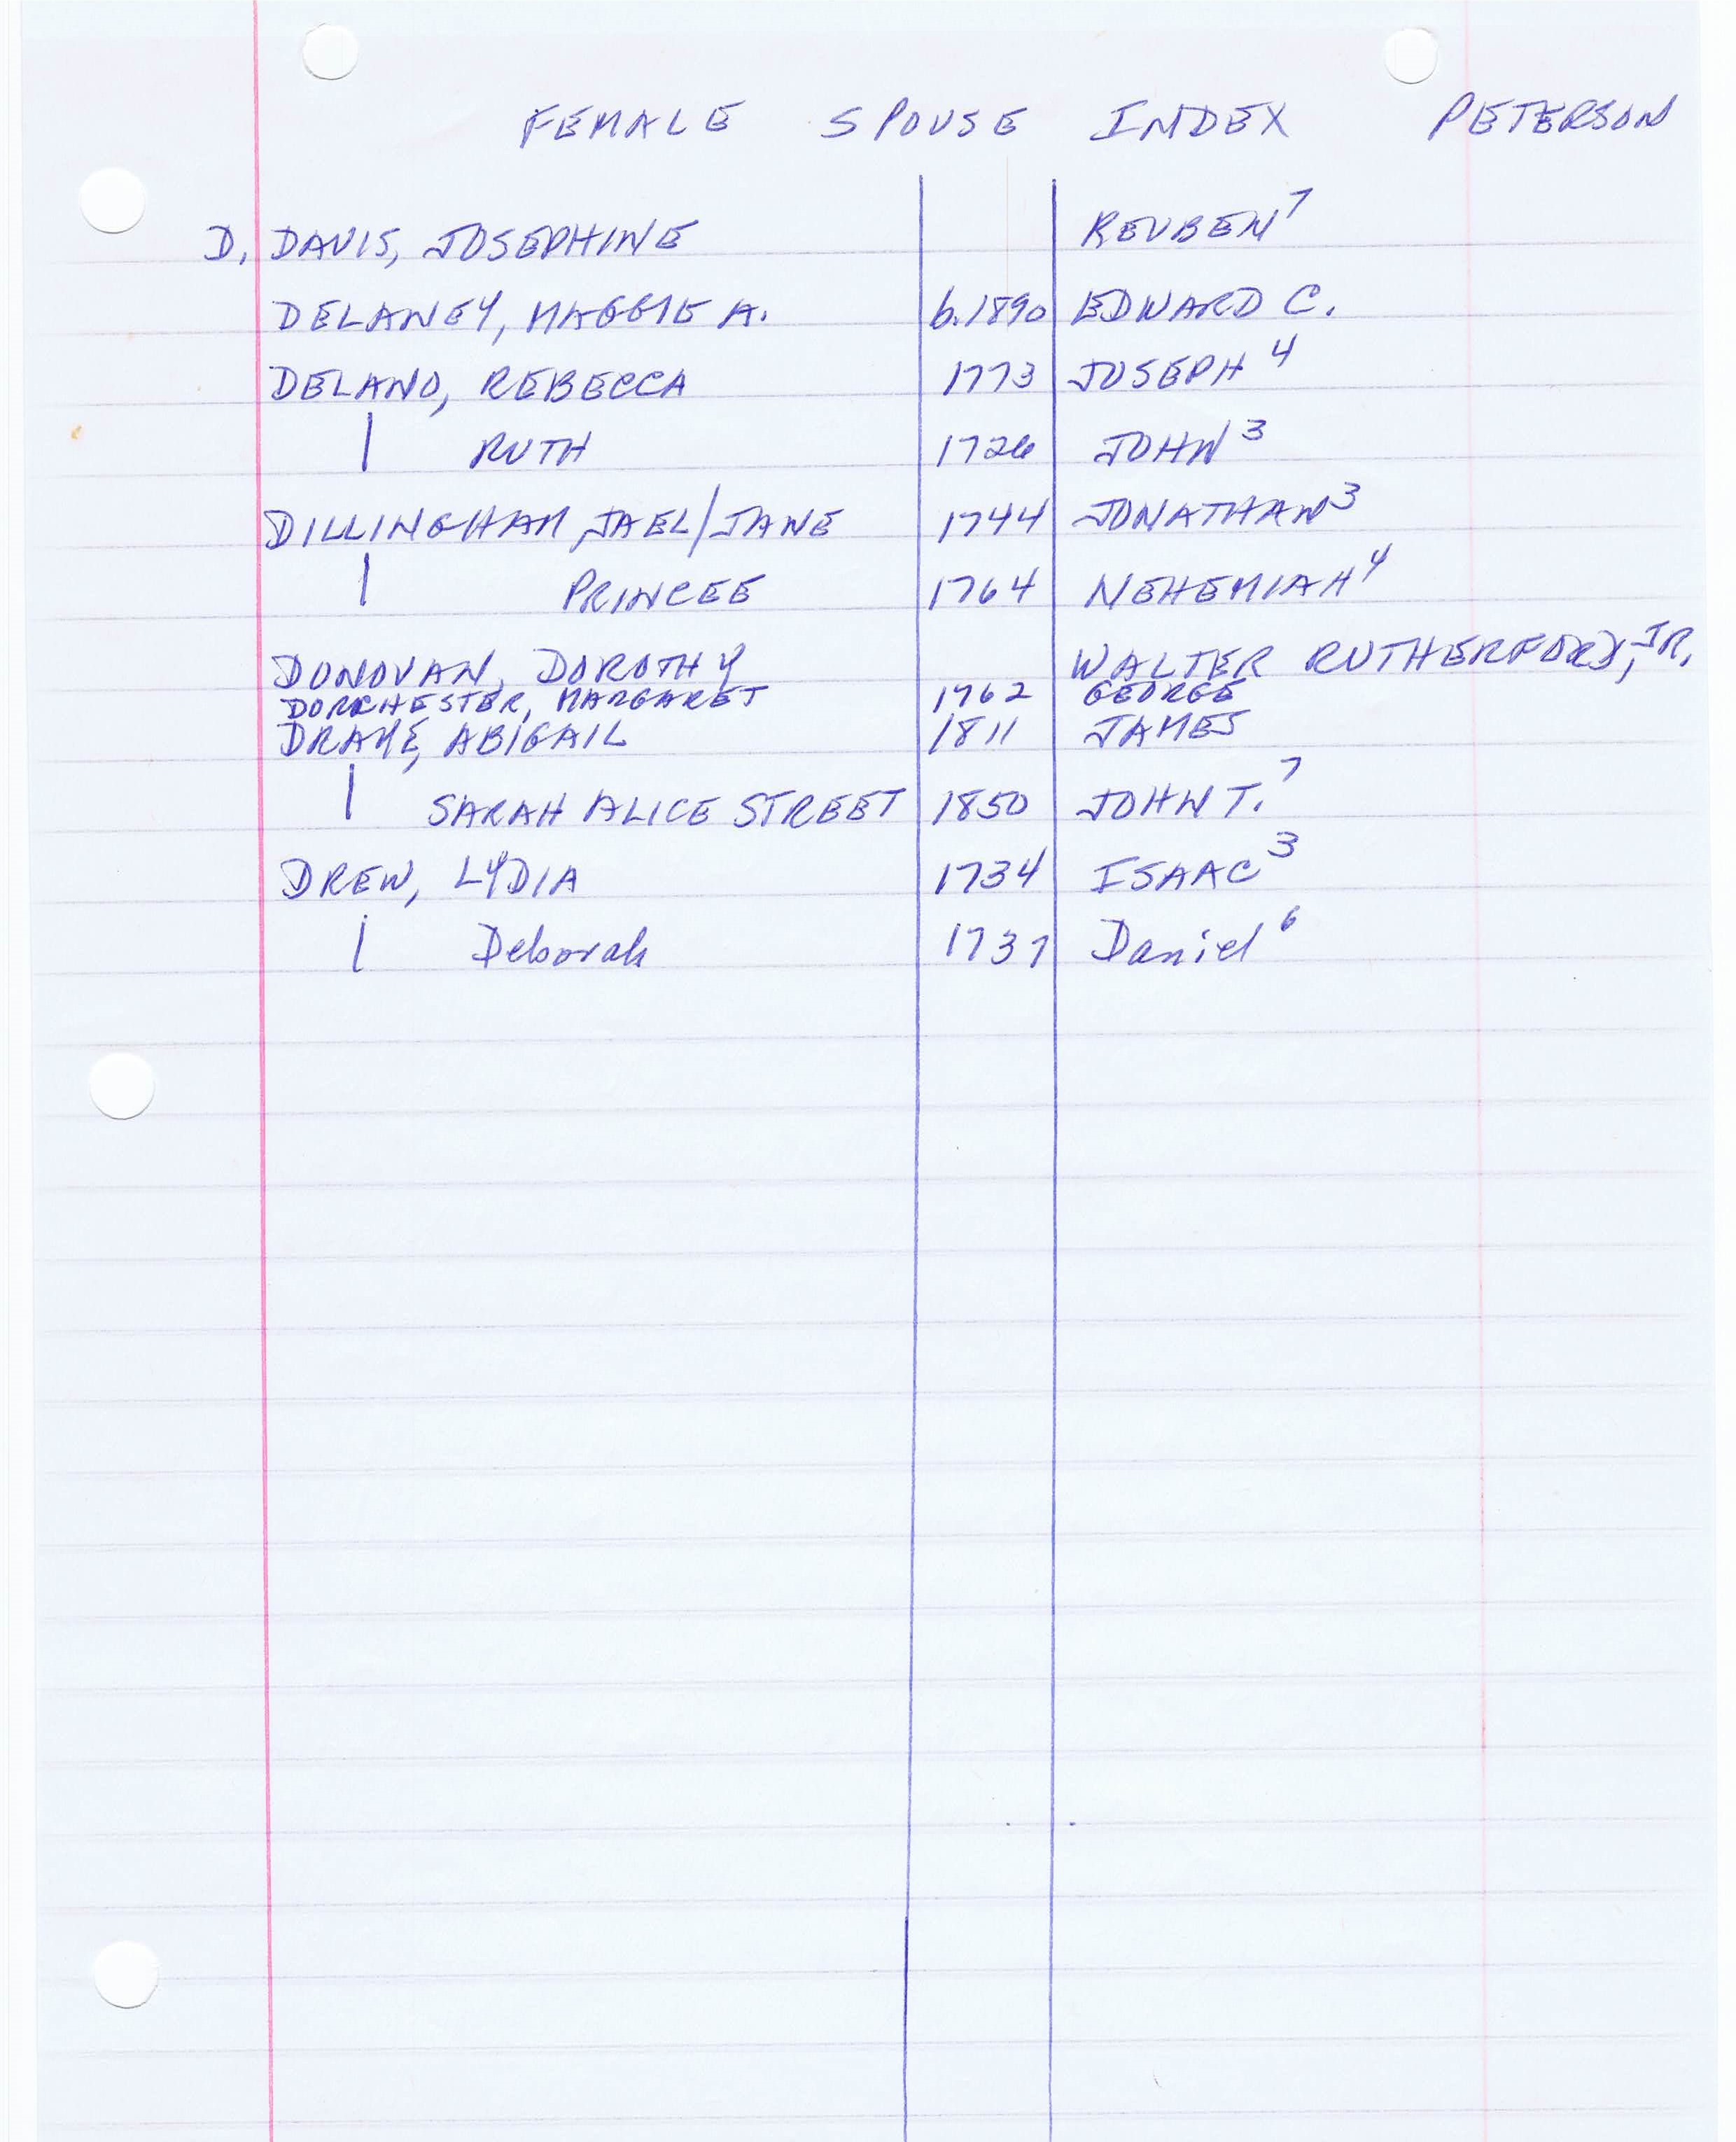 FEMALE SPOUSE INDEX PETERSON
D. DAVIS, JOSEPHINE REUBEN⁷
DELANEY, MAGGIE A. b.1890 EDWARD C.
DELANO, REBECCA 1773 JOSEPH⁴
| RUTH 1726 JOHN³
DILLINGHAM, JAEL/JANE 1744 JONATHAN³
| PRINCEE 1764 NEHEMIAH⁴
DONOVAN, DOROTHY WALTER RUTHERFORD, JR.
DORCHESTER, MARGARET 1762 GEORGE
DRAKE, ABIGAIL 1811 JAMES
| SARAH ALICE STREET 1850 JOHN T.⁷
DREW, LYDIA 1734 ISAAC³
| Deborah 1737 Daniel⁶